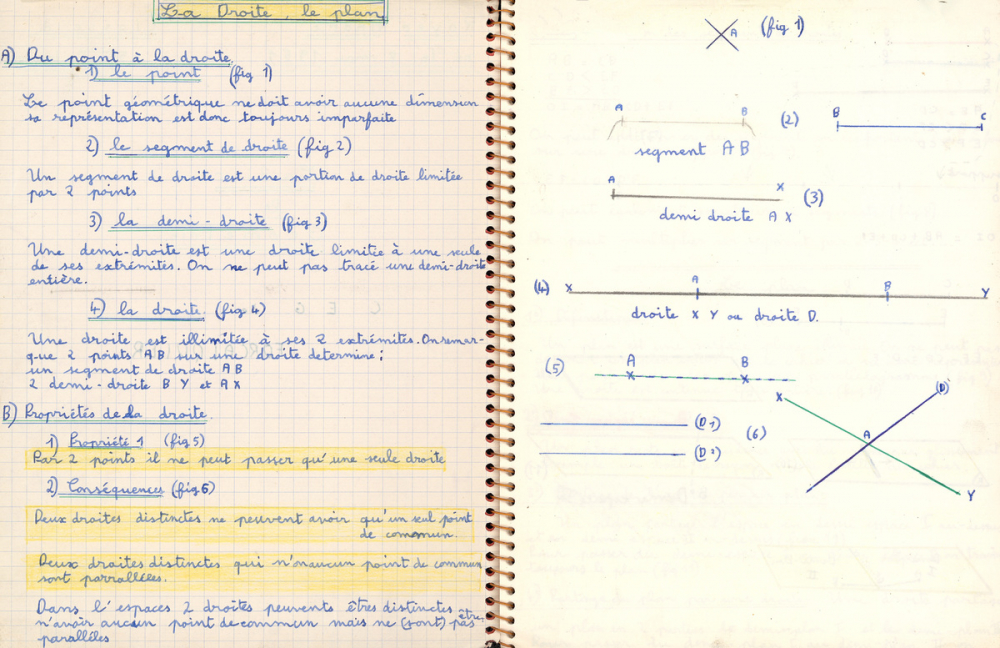 La Droite, le plan
A) Du point à la droite.
1) le point (fig 1)
Le point géométrique ne doit avoir aucune dimension
sa représentation est donc toujours imparfaite
2) le segment de droite (fig 2)
Un segment de droite est une portion de droite limitée
par 2 points
3) la demi-droite (fig 3)
Une demi-droite est une droite limitée à une seule
de ses extrémités. On ne peut pas tracé une demi-droite
entière.
4) la droite. (fig 4)
Une droite est illimitée à ses 2 extrémités. On remar-
que 2 points AB sur une droite determine :
un segment de droite AB
2 demi-droite B Y et A X
B) Propriétés de la droite.
1) Propriété 1 (fig 5)
Par 2 points il ne peut passer qu'une seule droite
2) Conséquences (fig 6)
Deux droites distinctes ne peuvent avoir qu'un seul point
de commun.
Deux droites distinctes qui n'onaucun point de commun
sont parrallèles.
Dans l'espaces 2 droites peuvents êtres distinctes
n'avoir aucun point de commun mais ne (sont) pas être
parallèles
A (fig 1)
A B (2) B C
segment A B
A x (3)
demi droite A X
(4) X A B Y
droite X Y ou droite D.
(5) A B
X (D)
(D1) (6) A
(D2)
Y